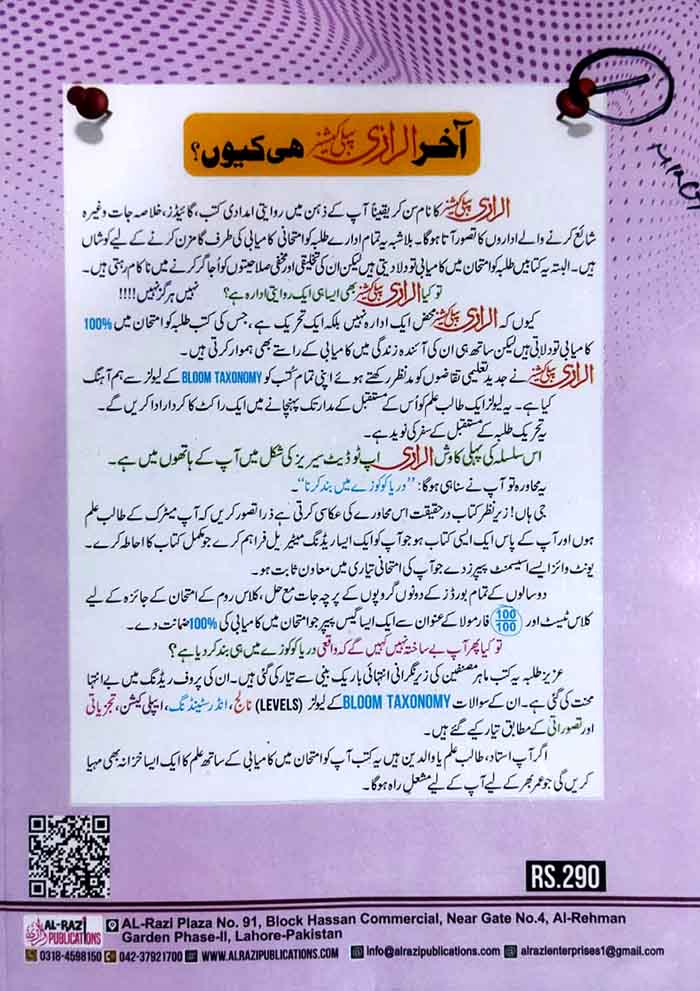 آخر الرازی پبلی کیشنز ھی کیوں؟
الرازی پبلی کیشنز کا نام سن کر یقیناً آپ کے ذہن میں روایتی امدادی کتب، گائیڈز، خلاصہ جات وغیرہ
شائع کرنے والے اداروں کا تصور آتا ہوگا۔ بلاشبہ یہ تمام ادارے طلبہ کو امتحانی کامیابی کی طرف گامزن کرنے کے لیے کوشاں
ہیں۔ البتہ یہ کتابیں طلبہ کو امتحان میں کامیابی تو دلا دیتی ہیں لیکن ان کی تخلیقی اور مخفی صلاحیتوں کو اُجاگر کرنے میں ناکام رہتی ہیں۔
تو کیا الرازی پبلی کیشنز بھی ایسا ہی ایک روایتی ادارہ ہے؟ نہیں ہرگز نہیں!!!!
کیوں کہ الرازی پبلی کیشنز محض ایک ادارہ نہیں بلکہ ایک تحریک ہے، جس کی کتب طلبہ کو امتحان میں 100%
کامیابی تو دلاتی ہیں لیکن ساتھ ہی ان کی آئندہ زندگی میں کامیابی کے راستے بھی ہموار کرتی ہیں۔
الرازی پبلی کیشنز نے جدید تعلیمی تقاضوں کو مدنظر رکھتے ہوئے اپنی تمام کُتب کو BLOOM TAXONOMY کے لیولز سے ہم آہنگ
کیا ہے۔ یہ لیولز ایک طالب علم کو اُس کے مستقبل کے مدار تک پہنچانے میں ایک راکٹ کا کردار ادا کریں گے۔
یہ تحریک طلبہ کے مستقبل کے سفر کی نوید ہے۔
اس سلسلہ کی پہلی کاوش الرازی اپ ٹو ڈیٹ سیریز کی شکل میں آپ کے ہاتھوں میں ہے۔
یہ محاورہ تو آپ نے سنا ہی ہوگا: ”دریا کو کوزے میں بند کرنا“۔
جی ہاں! زیر نظر کتاب در حقیقت اس محاورے کی عکاسی کرتی ہے ذرا تصور کریں کہ آپ میٹرک کے طالب علم
ہوں اور آپ کے پاس ایک ایسی کتاب ہو جو آپ کو ایک ایسا ریڈنگ میٹیریل فراہم کرے جو مکمل کتاب کا احاطہ کرے۔
یونٹ وائز ایسے اسیسمنٹ پیپرز دے جو آپ کی امتحانی تیاری میں معاون ثابت ہو۔
دو سالوں کے تمام بورڈز کے دونوں گروپوں کے پرچہ جات مع حل، کلاس روم کے امتحان کے جائزہ کے لیے
کلاس ٹیسٹ اور 100/100 فارمولا کے عنوان سے ایک ایسا گیس پیپر جو امتحان میں کامیابی کی 100% ضمانت دے۔
تو کیا پھر آپ بے ساختہ نہیں کہیں گے کہ واقعی دریا کو کوزے میں ہی بند کر دیا ہے؟
عزیز طلبہ یہ کتب ماہر مصنفین کی زیر نگرانی انتہائی باریک بینی سے تیار کی گئی ہیں۔ ان کی پروف ریڈنگ میں بے انتہا
محنت کی گئی ہے۔ ان کے سوالات BLOOM TAXONOMY کے لیولز (LEVELS) نالج، انڈرسٹینڈنگ، ایپلی کیشن، تجزیاتی
اور تصوراتی کے مطابق تیار کیے گئے ہیں۔
اگر آپ استاد، طالب علم یا والدین ہیں یہ کتب آپ کو امتحان میں کامیابی کے ساتھ علم کا ایک ایسا خزانہ بھی مہیا
کریں گی جو عمر بھر کے لیے آپ کے لیے مشعلِ راہ ہوگا۔
RS.290
AL-RAZI PUBLICATIONS
AL-Razi Plaza No. 91, Block Hassan Commercial, Near Gate No.4, Al-Rehman
Garden Phase-II, Lahore-Pakistan
0318-4598150 042-37921700 WWW.ALRAZIPUBLICATIONS.COM Info@alrazipublications.com alrazienterprises1@gmail.com